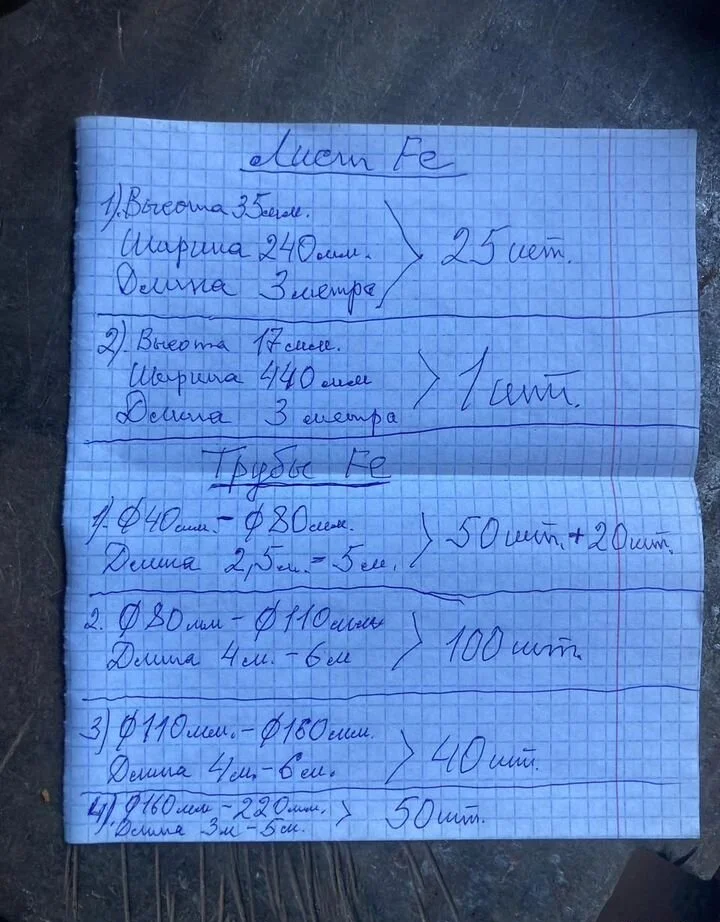 Лист Fe
1). Высота 35мм.
Ширина 240мм.
Длина 3 метра
25 шт.
2). Высота 17мм.
Ширина 440мм
Длина 3 метра
1 шт.
Трубы Fe
1). ϕ40мм. - ϕ80мм.
Длина 2,5м. - 5м.
50 шт. + 20 шт.
2. ϕ80мм - ϕ110мм
Длина 4м. - 6м
100 шт.
3) ϕ110мм. - ϕ160мм.
Длина 4м. - 6м.
40 шт.
4). ϕ160мм - 220мм.
Длина 3м - 5м.
50 шт.